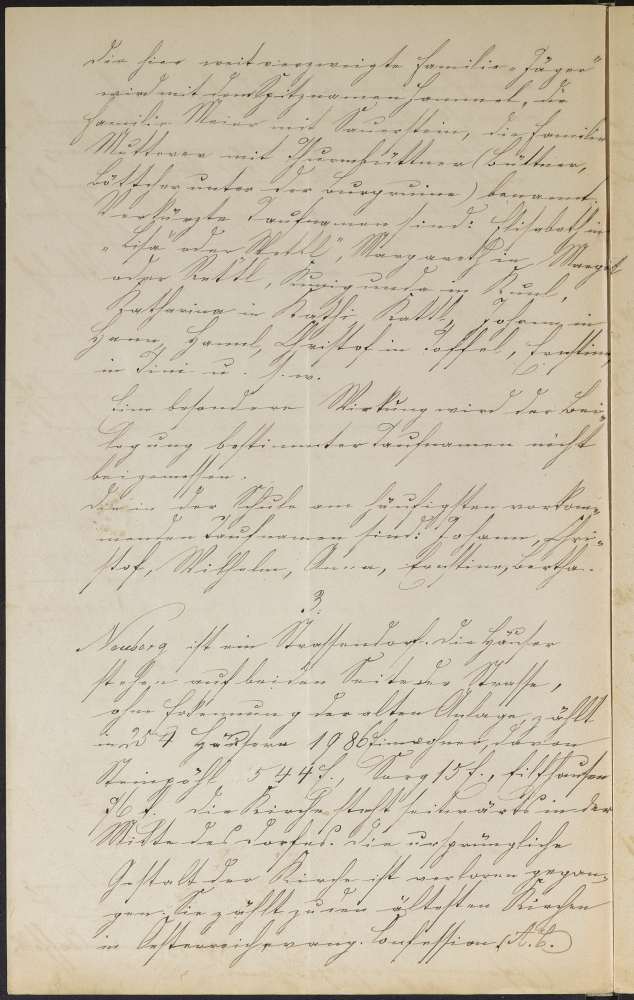 Die hier weitverzweigte Familie „Jäger"
wird mit dem Spitznamen Hammel, die
Familie Meier mit Sauerstein, die Familie
Mutterer mit Thurmbüttner (Büttner,
Böttcher unter der Burgruine) benannt.
Verkürzte Taufnamen sind: Elisabeth in
„Lisa" oder Bettl", Margareth in Margeth
oder Rettl, Kunigunda in Kunl,
Katharina in Kathi Kattl, Johann in
Hann, Hannl, Christof in Toffel, Ernstine
in Tini u. s. w.
Eine besondere Wirkung wird der Bei=
legung bestimmter Taufnamen nicht
beigemessen.
Die in der Schule am häufigsten vorkom=
menden Taufnamen sind: Johann, Chri=
stof, Wilhelm, Anna, Ernstine, Bertha.
3.
Neuberg ist ein Strassendorf. Die Häuser
stehen auf beiden Seite der Strasse,
ohne der alten Anlage, zählt
in 254 Häusern 1986 Einwohner, davon
Steinpöhl 544 E., Sorg 15 E.,
76 E. Die Kirche steht seitwärts in der
Mitte des Dorfes. Die ursprüngliche
Gestalt der Kirche ist verloren gegan=
gen. Sie zählt zu den ältesten Kirchen
in Oesterreich evang. Confession (A.C.)